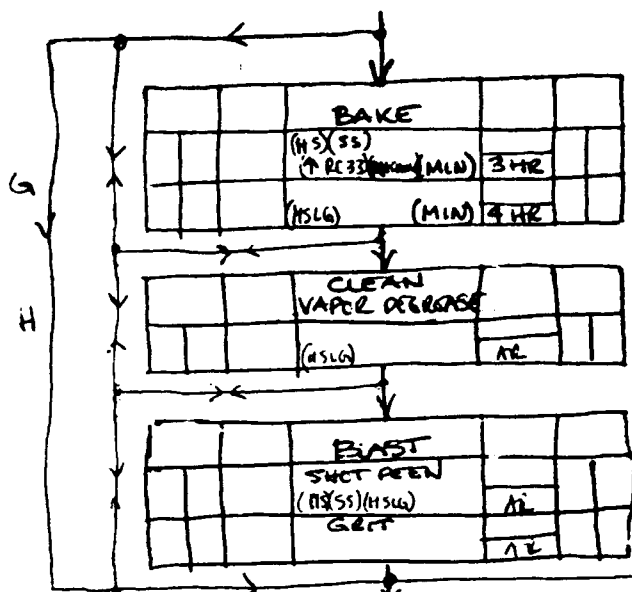 BAKE
(HS)(SS)
(↑ RC33) (MIN) 3 HR
G
(HSLG) (MIN) 4 HR
CLEAN
VAPER DEGREASE
H
(HSLG) AR
BLAST
SHOT PEEN
(HS)(SS)(HSLG) AR
GRIT
AR